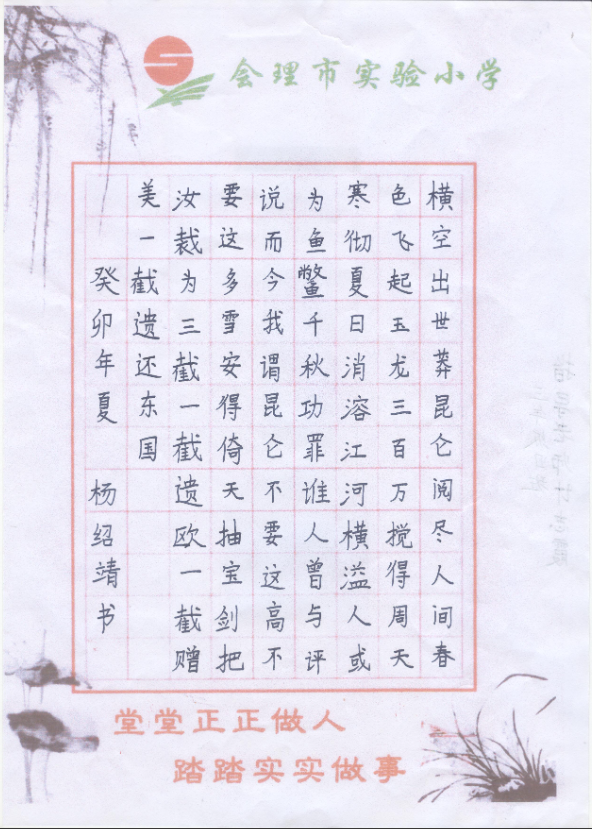 会理市实验小学
横空出世莽昆仑阅尽人间春
色飞起玉龙三百万搅得周天
寒彻夏日消溶江河横溢人或
为鱼鳖千秋功罪谁人曾与评
说而今我谓昆仑不要这高不
要这多雪安得倚天抽宝剑把
汝裁为三截一截遗欧一截赠
美一截遗还东国
癸卯年夏 杨绍靖书
堂堂正正做人
踏踏实实做事